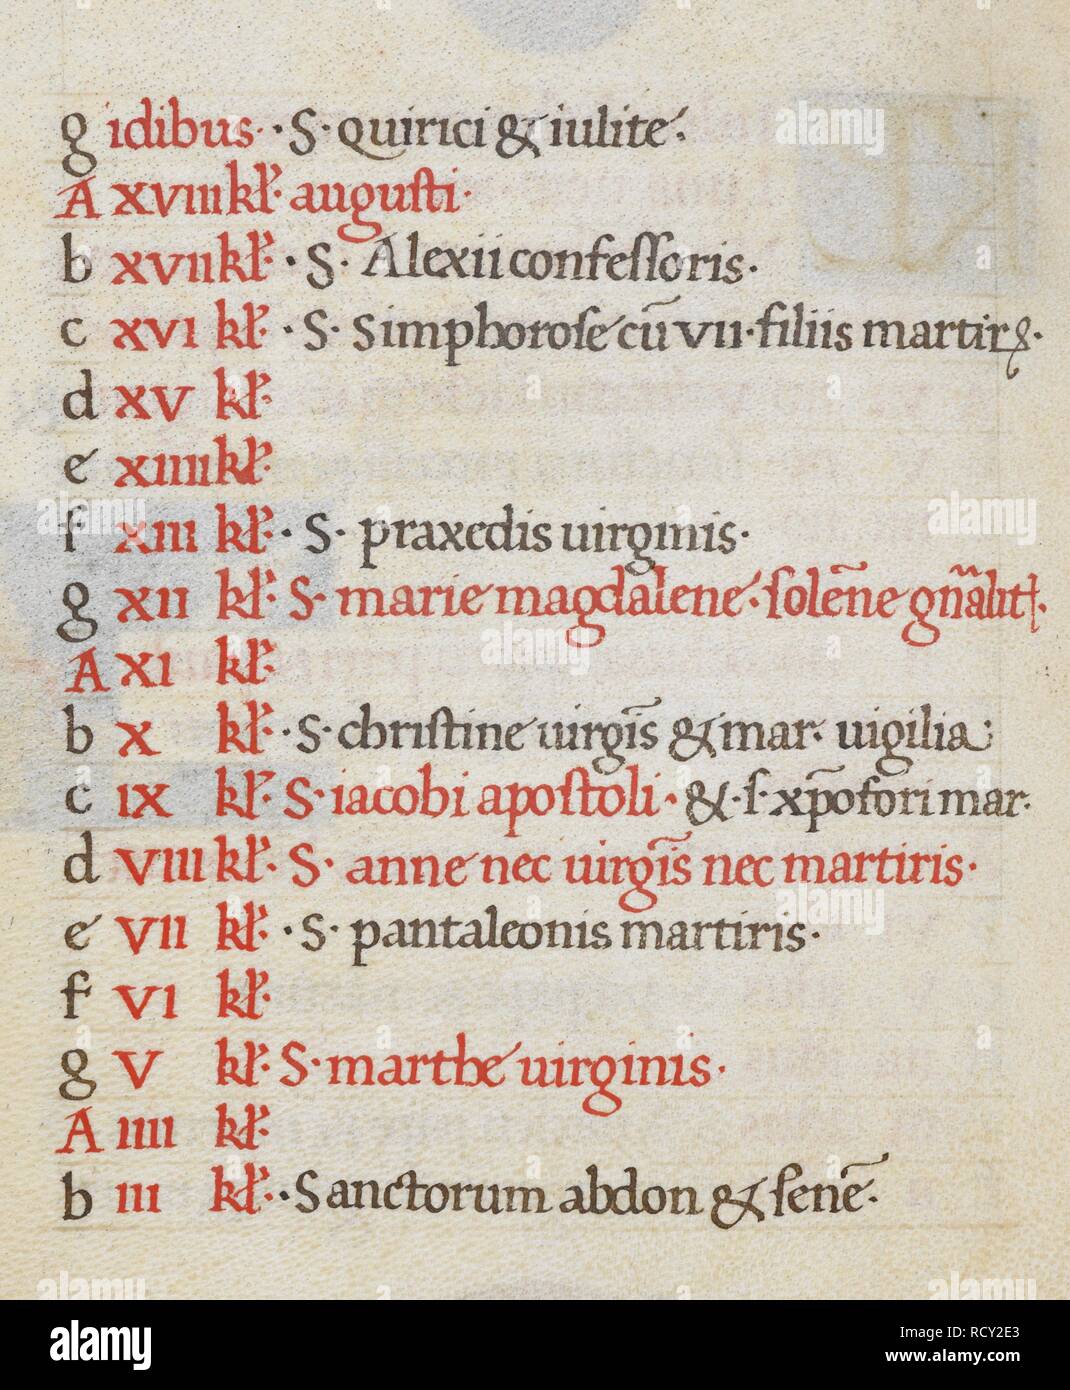 g idibus · S · quirici & iulite ·
A XVIII kl' augusti ·
b XVII kl' · S · Alexii confessoris ·
c XVI kl' · S · Simphorose cū VII · filiis martirꝝ ·
d XV kl'
e XIIII kl'
f XIII kl' · S · praxedis uirginis ·
g XII kl' S · marie magdalene · solēne gn̄alit ·
A XI kl'
b X kl' · S · christine uirgīs & mar · uigilia ;
c IX kl' S · iacobi apostoli · & · s · xp̄ofori mar ·
d VIII kl' S · anne nec uirgīs nec martiris ·
e VII kl' · S · pantaleonis martiris ·
f VI kl'
g V kl' S · marthe uirginis ·
A IIII kl'
b III kl' · Sanctorum abdon & senē ·
alamy
a
alamy
Image ID: RCY2E3
www.alamy.com